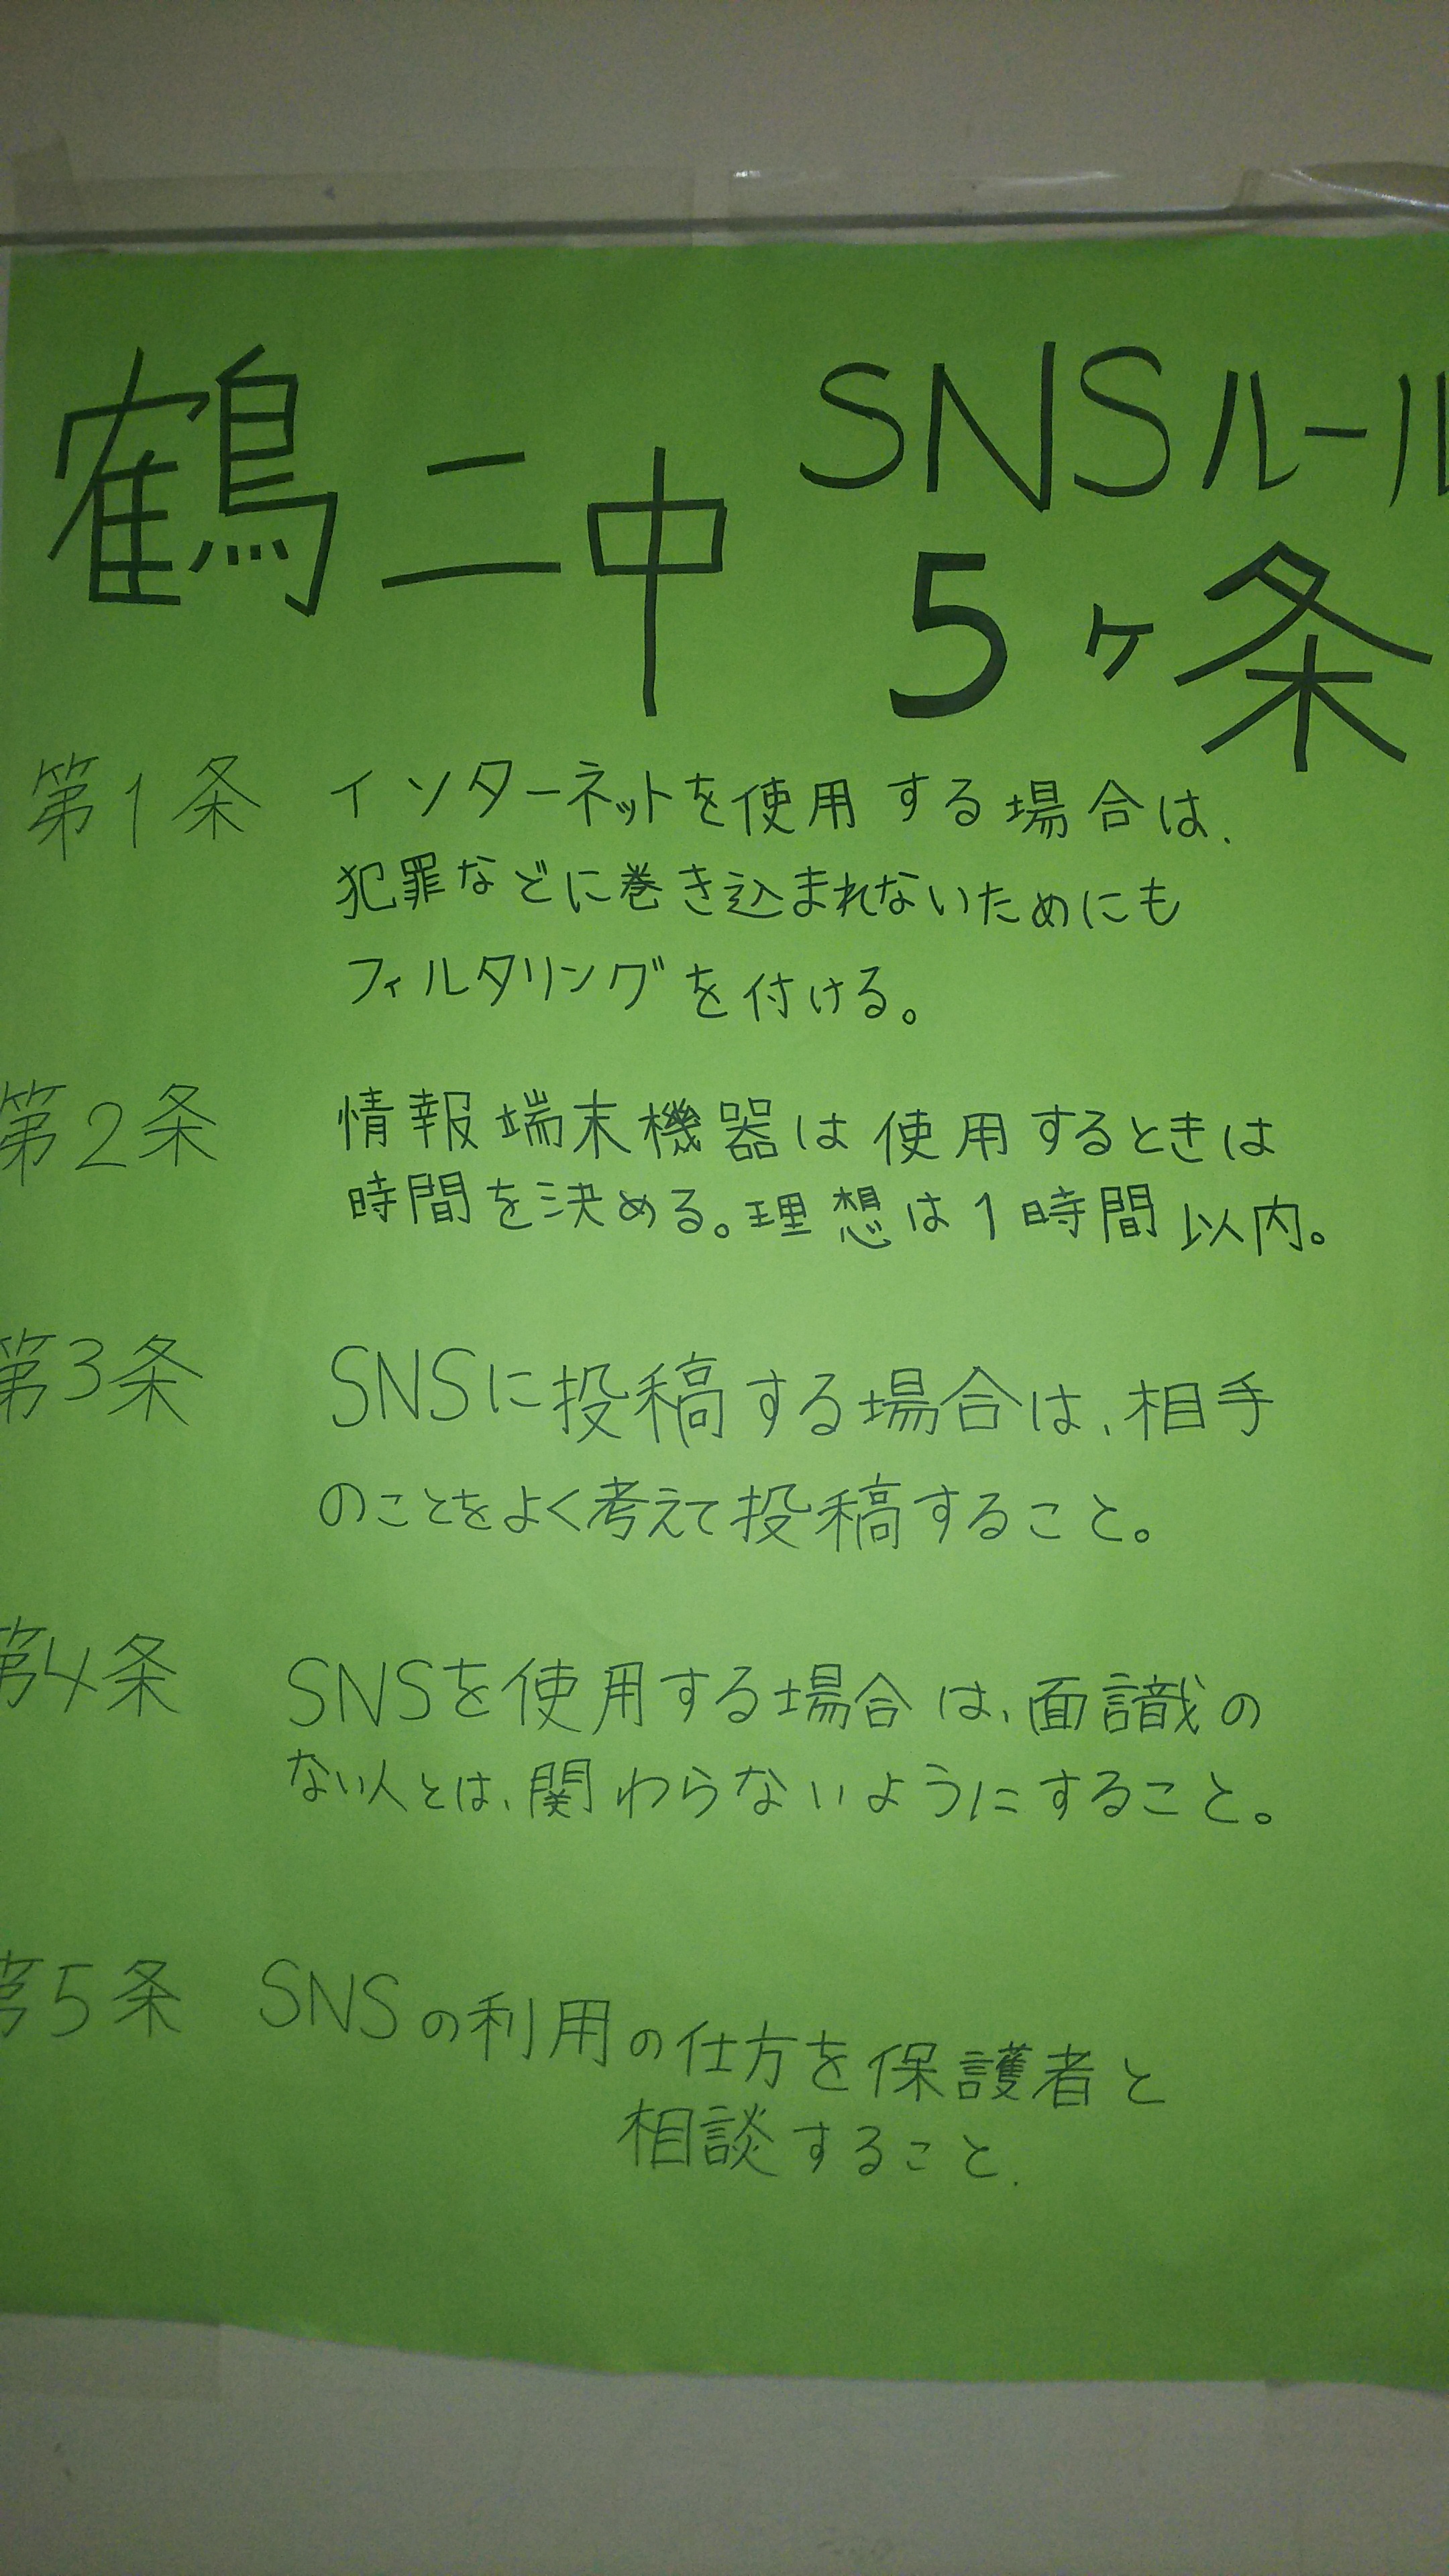 鶴二中 SNSルール
5ヶ条
第1条 インターネットを使用する場合は、
犯罪などに巻き込まれないためにも
フィルタリングを付ける。
第2条 情報端末機器は使用するときは
時間を決める。理想は1時間以内。
第3条 SNSに投稿する場合は、相手
のことをよく考えて投稿すること。
第4条 SNSを使用する場合は、面識の
ない人とは、関わらないようにすること。
第5条 SNSの利用の仕方を保護者と
相談すること.